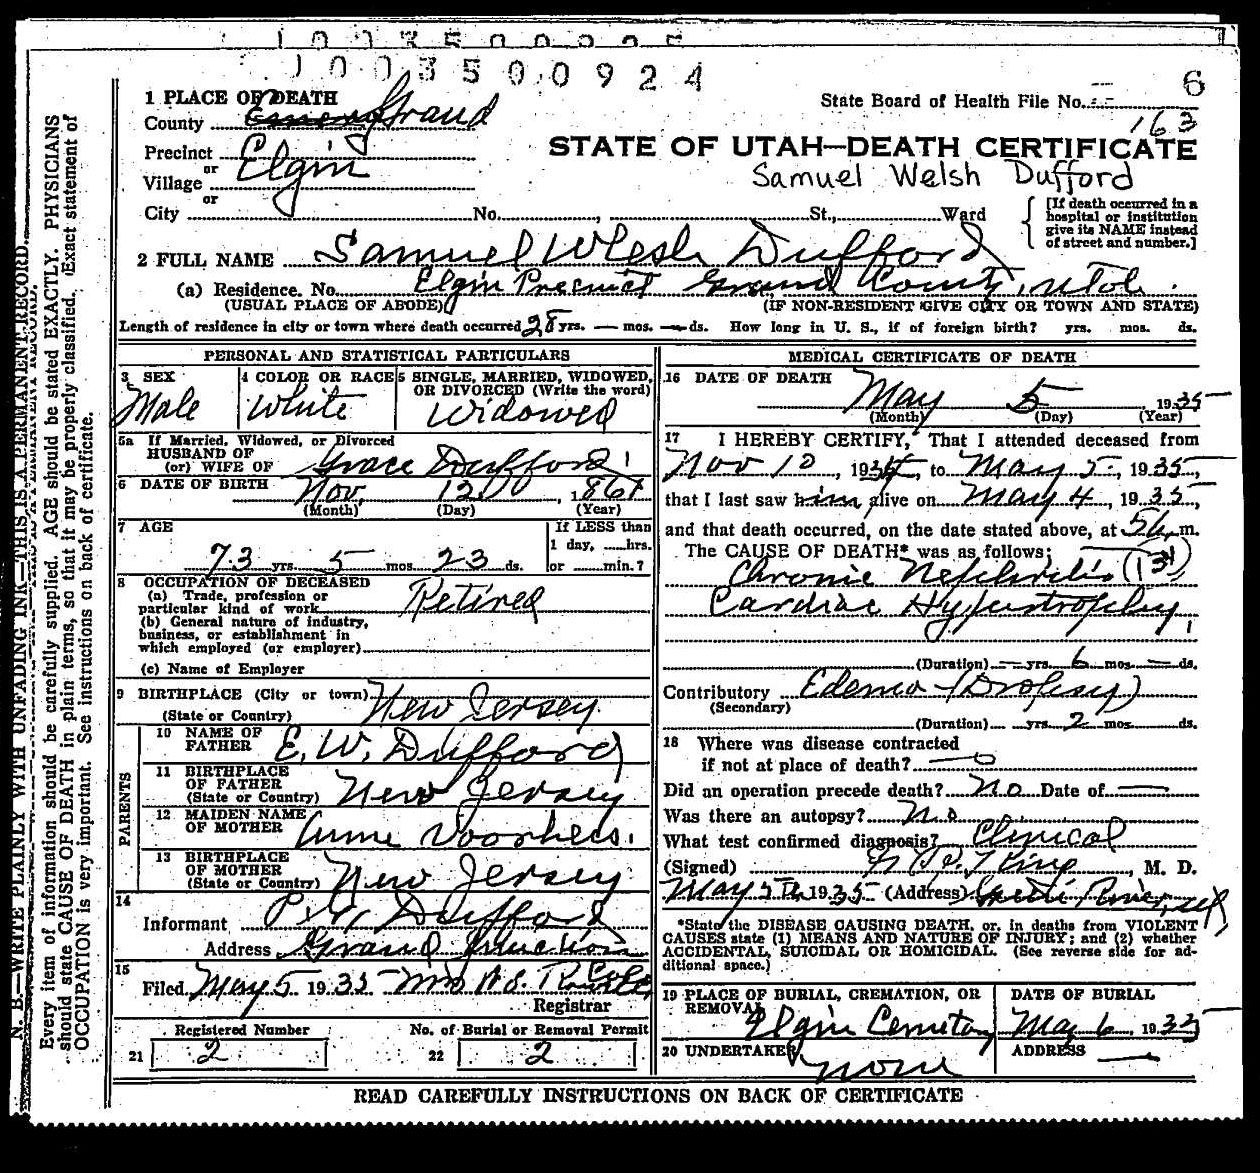 1003500925
1003500924
6
1 PLACE OF DEATH
State Board of Health File No.
163
County Emery Grand
STATE OF UTAH—DEATH CERTIFICATE
Precinct Elgin
or
Samuel Welsh Dufford
Village
or
City No. , St., Ward
[If death occurred in a hospital or institution give its NAME instead of street and number.]
2 FULL NAME Samuel Wlesh Dufford
(a) Residence. No. Elgin Precinct Grand County, Utah.
(USUAL PLACE OF ABODE) (IF NON-RESIDENT GIVE CITY OR TOWN AND STATE)
Length of residence in city or town where death occurred 28 yrs. — mos. — ds. How long in U. S., if of foreign birth? yrs. mos. ds.
PERSONAL AND STATISTICAL PARTICULARS
3 SEX
Male
4 COLOR OR RACE
White
5 SINGLE, MARRIED, WIDOWED,
OR DIVORCED (Write the word)
Widowed
5a If Married, Widowed, or Divorced
HUSBAND OF
(or) WIFE OF Grace Dufford
6 DATE OF BIRTH Nov. 12th, 1861
(Month) (Day) (Year)
7 AGE
73 yrs. 5 mos. 23 ds.
If LESS than
1 day, hrs.
or min.?
8 OCCUPATION OF DECEASED
(a) Trade, profession or
particular kind of work Retired
(b) General nature of industry,
business, or establishment in
which employed (or employer)
(c) Name of Employer
9 BIRTHPLACE (City or town)
(State or Country) New Jersey
PARENTS
10 NAME OF
FATHER E. W. Dufford
11 BIRTHPLACE
OF FATHER
(State or Country) New Jersey
12 MAIDEN NAME
OF MOTHER Anne Voorhees.
13 BIRTHPLACE
OF MOTHER
(State or Country) New Jersey
14
Informant P. W. Dufford
Address Grand Junction
15
Filed May 5 1935 Mrs H. S.
Registrar
Registered Number
21 2
No. of Burial or Removal Permit
22 2
MEDICAL CERTIFICATE OF DEATH
16 DATE OF DEATH
May 5 1935
(Month) (Day) (Year)
17 I HEREBY CERTIFY, That I attended deceased from
Nov 10, 1934, to May 5, 1935,
that I last saw him alive on May 4, 1935,
and that death occurred, on the date stated above, at 5 a. m.
The CAUSE OF DEATH* was as follows:
Chronic Nephritis (131)
Cardiac Hypertrophy,
(Duration) — yrs. 6 mos. — ds.
Contributory Edema - (Dropsy)
(Secondary)
(Duration) yrs. 2 mos. ds.
18 Where was disease contracted
if not at place of death? — 0
Did an operation precede death? No Date of —
Was there an autopsy? No
What test confirmed diagnosis? Clinical
(Signed) King, M. D.
May 5th 1935 (Address) Green River, Ut,
*State the DISEASE CAUSING DEATH, or, in deaths from VIOLENT
CAUSES state (1) MEANS AND NATURE OF INJURY; and (2) whether
ACCIDENTAL, SUICIDAL OR HOMICIDAL. (See reverse side for ad-
ditional space.)
19 PLACE OF BURIAL, CREMATION, OR
REMOVAL
Elgin Cemetery
DATE OF BURIAL
May 6, 1935
20 UNDERTAKER
none
ADDRESS —
READ CAREFULLY INSTRUCTIONS ON BACK OF CERTIFICATE
N. B.—WRITE PLAINLY WITH UNFADING INK—THIS IS A PERMANENT RECORD.
Every item of information should be carefully supplied. AGE should be stated EXACTLY. PHYSICIANS
should state CAUSE OF DEATH in plain terms, so that it may be properly classified. Exact statement of
OCCUPATION is very important. See instructions on back of certificate.